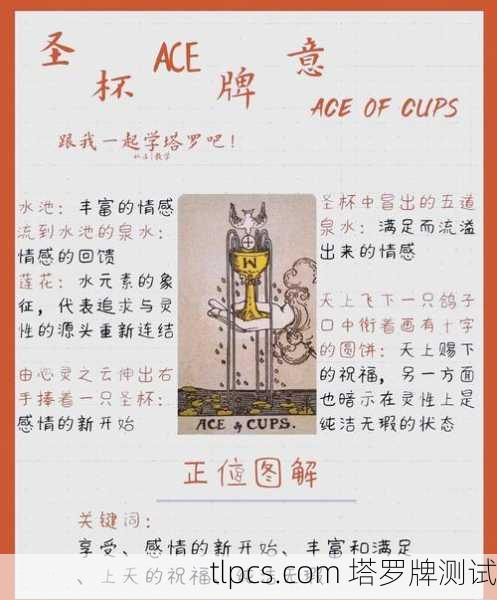 圣杯 ACE 牌意
ACE OF CUPS
跟我一起学塔罗吧!
水池:丰富的情感
流到水池的泉水:
情感的回馈
莲花:水元素的象
征,代表追求与灵
性的源头重新连结
由心灵之云伸出右
手捧着一只圣杯:
感情的新开始
W
ACE of CUPS.
圣杯中冒出的五道
泉水:满足而流溢
出来的情感
天上飞下一只鸽子
口中衔着画有十字
的圆饼:天上赐下
的祝福,另一方面
也暗示在灵性上是
纯洁无瑕的状态
正位图解
关键词:
享受、感情的新开始、丰富和满足
、上天的祝福、纯洁无瑕
tlpcs.com 塔罗牌测试